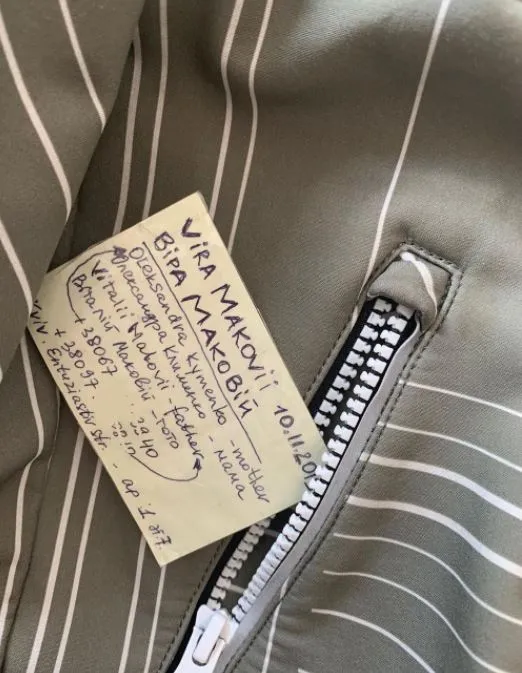 VIRA MAKOVII
ВІРА МАКОВІЙ 10.11.20
Oleksandra Kymenko - mother
Александра Клименко - мама
Vitalii Makovii - father
Віталій Маковій - тато
+38067 40
+38097
Entuziastiv str. - ap. 1